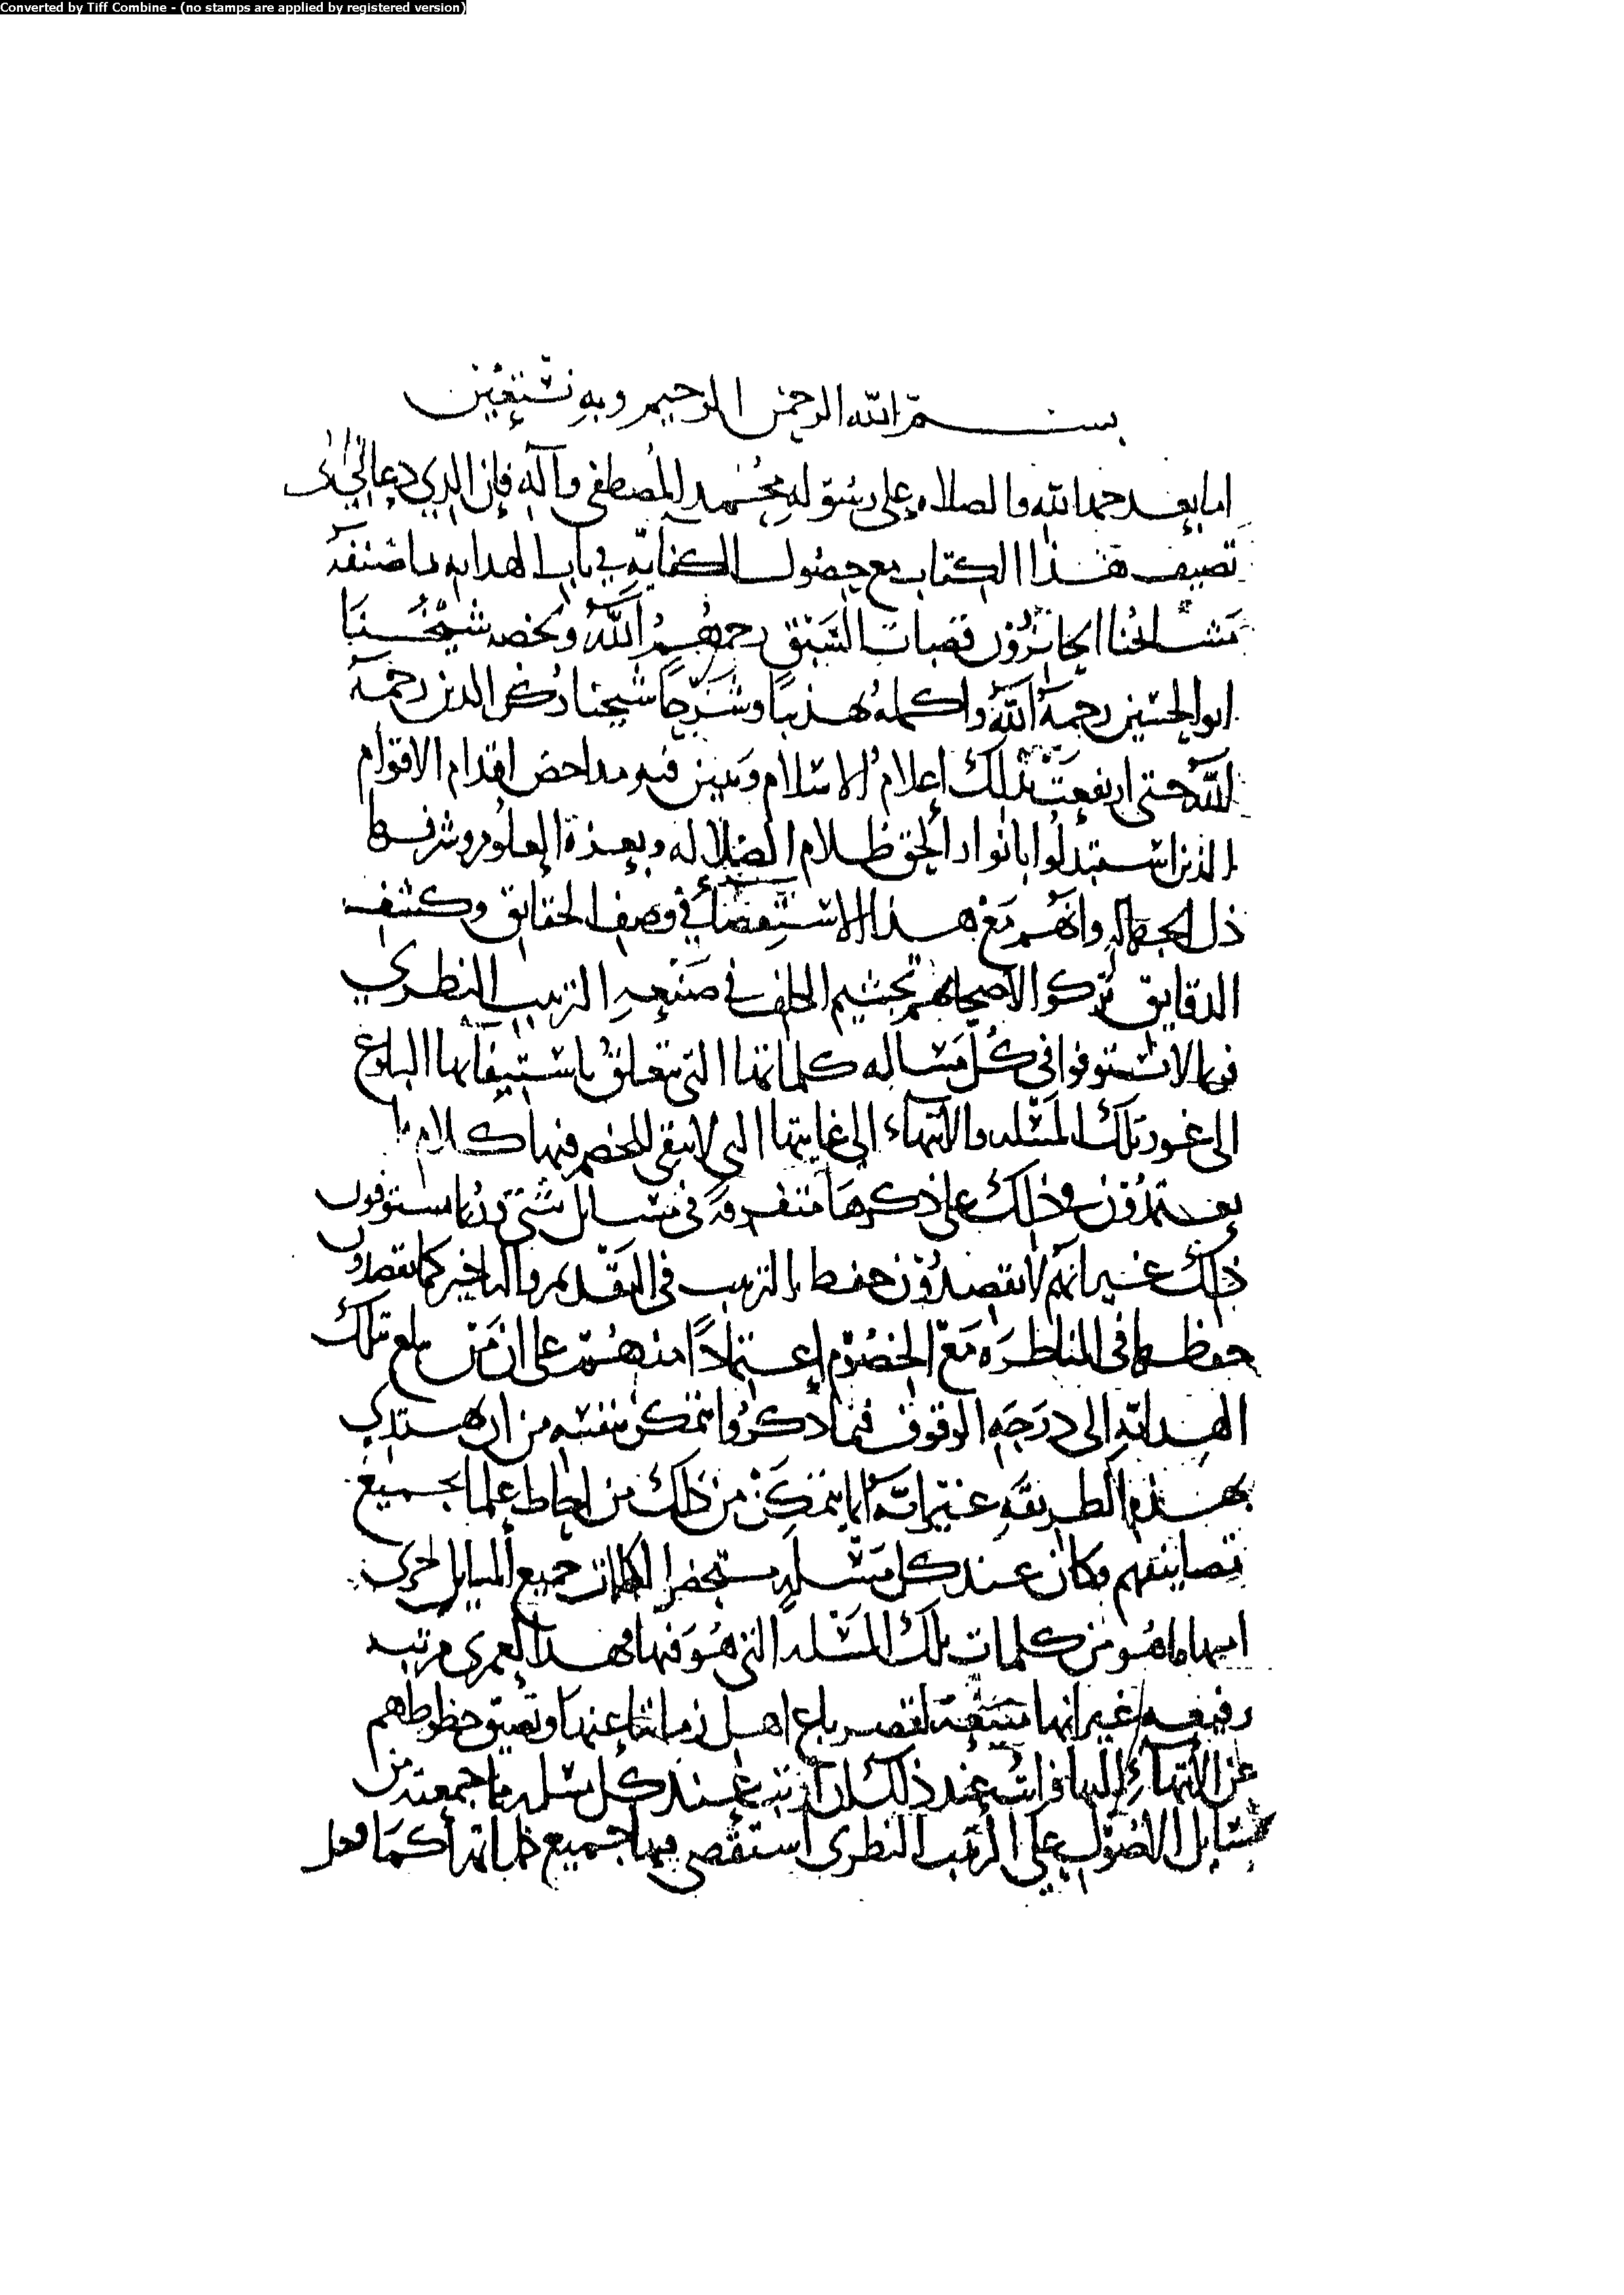 Converted by Tiff Combine - (no stamps are applied by registered version)
بسم الله الرحمن الرحيم وبه نستعين
اما بعد حمد الله والصلاه على رسوله محمد المصطفى وآله فإن الذي دعاني الى
تصنيف هذا الكتاب مع حصول الكفاية في باب الهدايه ما صنفه
مشائخنا الحائزون قصبات السبق رحمهم الله ولخصه شيخنا
ابو الحسين رحمه الله واكمله تهذيبا وشرحا شيخنا ركن الدين رحمه
الله حتى ارتفعت بذلك اعلام الاسلام وتبين فيه مداحض اقدام الاقوام
الذين استبدلوا بانوار الحق ظلام الضلاله وبعزة العلوم وشرفها
ذل الجهاله وانهم مع هذا الاستقصاء في وصف الحقايق وكشف
الدقايق تركوا لاصحابهم تجشم الكلف في صنعه الترتيب النظري
فيما لا يستوفوا في كل مساله كلماتها التي تتعلق باستيفائها البلوغ
الى غور تلك المسله والانتهاء الى غايتها التي لا يبقى للخصم فيها كلام
يعتمدون في ذلك على ذكرها متفرقه في مسايل شتى وربما يستوفون
ذلك غير انهم لا يقصدون حفظ الترتيب في التقديم والتاخير كما يقصدون
حفظها في المناظره مع الخصوم اعتمادا منهم على ان من بلغ تلك
الهدايه الى درجه الوقوف فيما ذكروا تمكن بنفسه من ان يهتدي
بهذه الطريقه غير انه انما يتمكن من ذلك من احاط علما بجميع
تصانيفهم وكان عند كل مسله مستحضرا لكلمات جميع المسايل
ما هو من كلمات تلك المسله التي هو فيها وهذا لعمري مرتبه
رفيعه غير انها لقصر باع اهل زماننا عنها وتضيق حظوظهم
عن الانتهاء اليها فرايت عند ذلك ان ارتب عند كل مسله ما جمعته من
مسايل الاصول على الترتيب النظري استقصي فيها جميع كما فعل